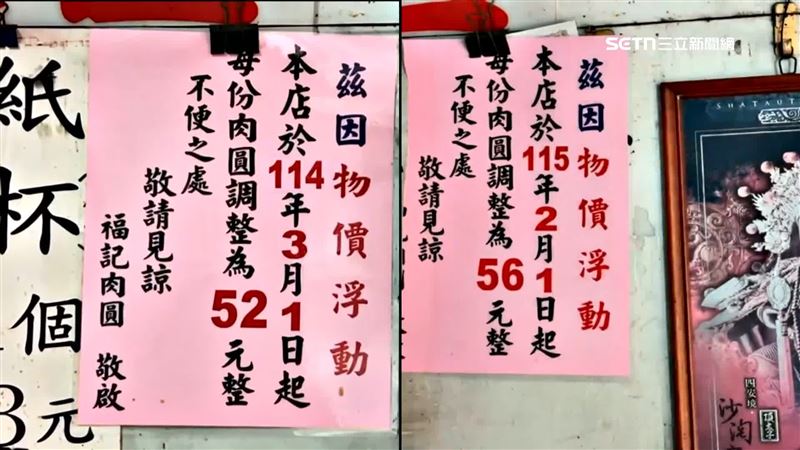 茲因物價浮動
本店於114年3月1日起
每份肉圓調整為52元整
不便之處
敬請見諒
福記肉圓 敬啟
紙杯個元
茲因物價浮動
本店於115年2月1日起
每份肉圓調整為56元整
不便之處
敬請見諒
SETN三立新聞網
SHATAUT
四安境
沙淘